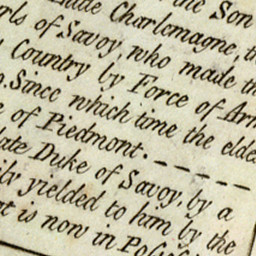 the Son
Charlemagne, th
rls of Savoy, who made th
Country by Force of Arm
Since which time the elde
e of Piedmont.
late Duke of Savoy, by a
ily yielded to him by the
t is now in